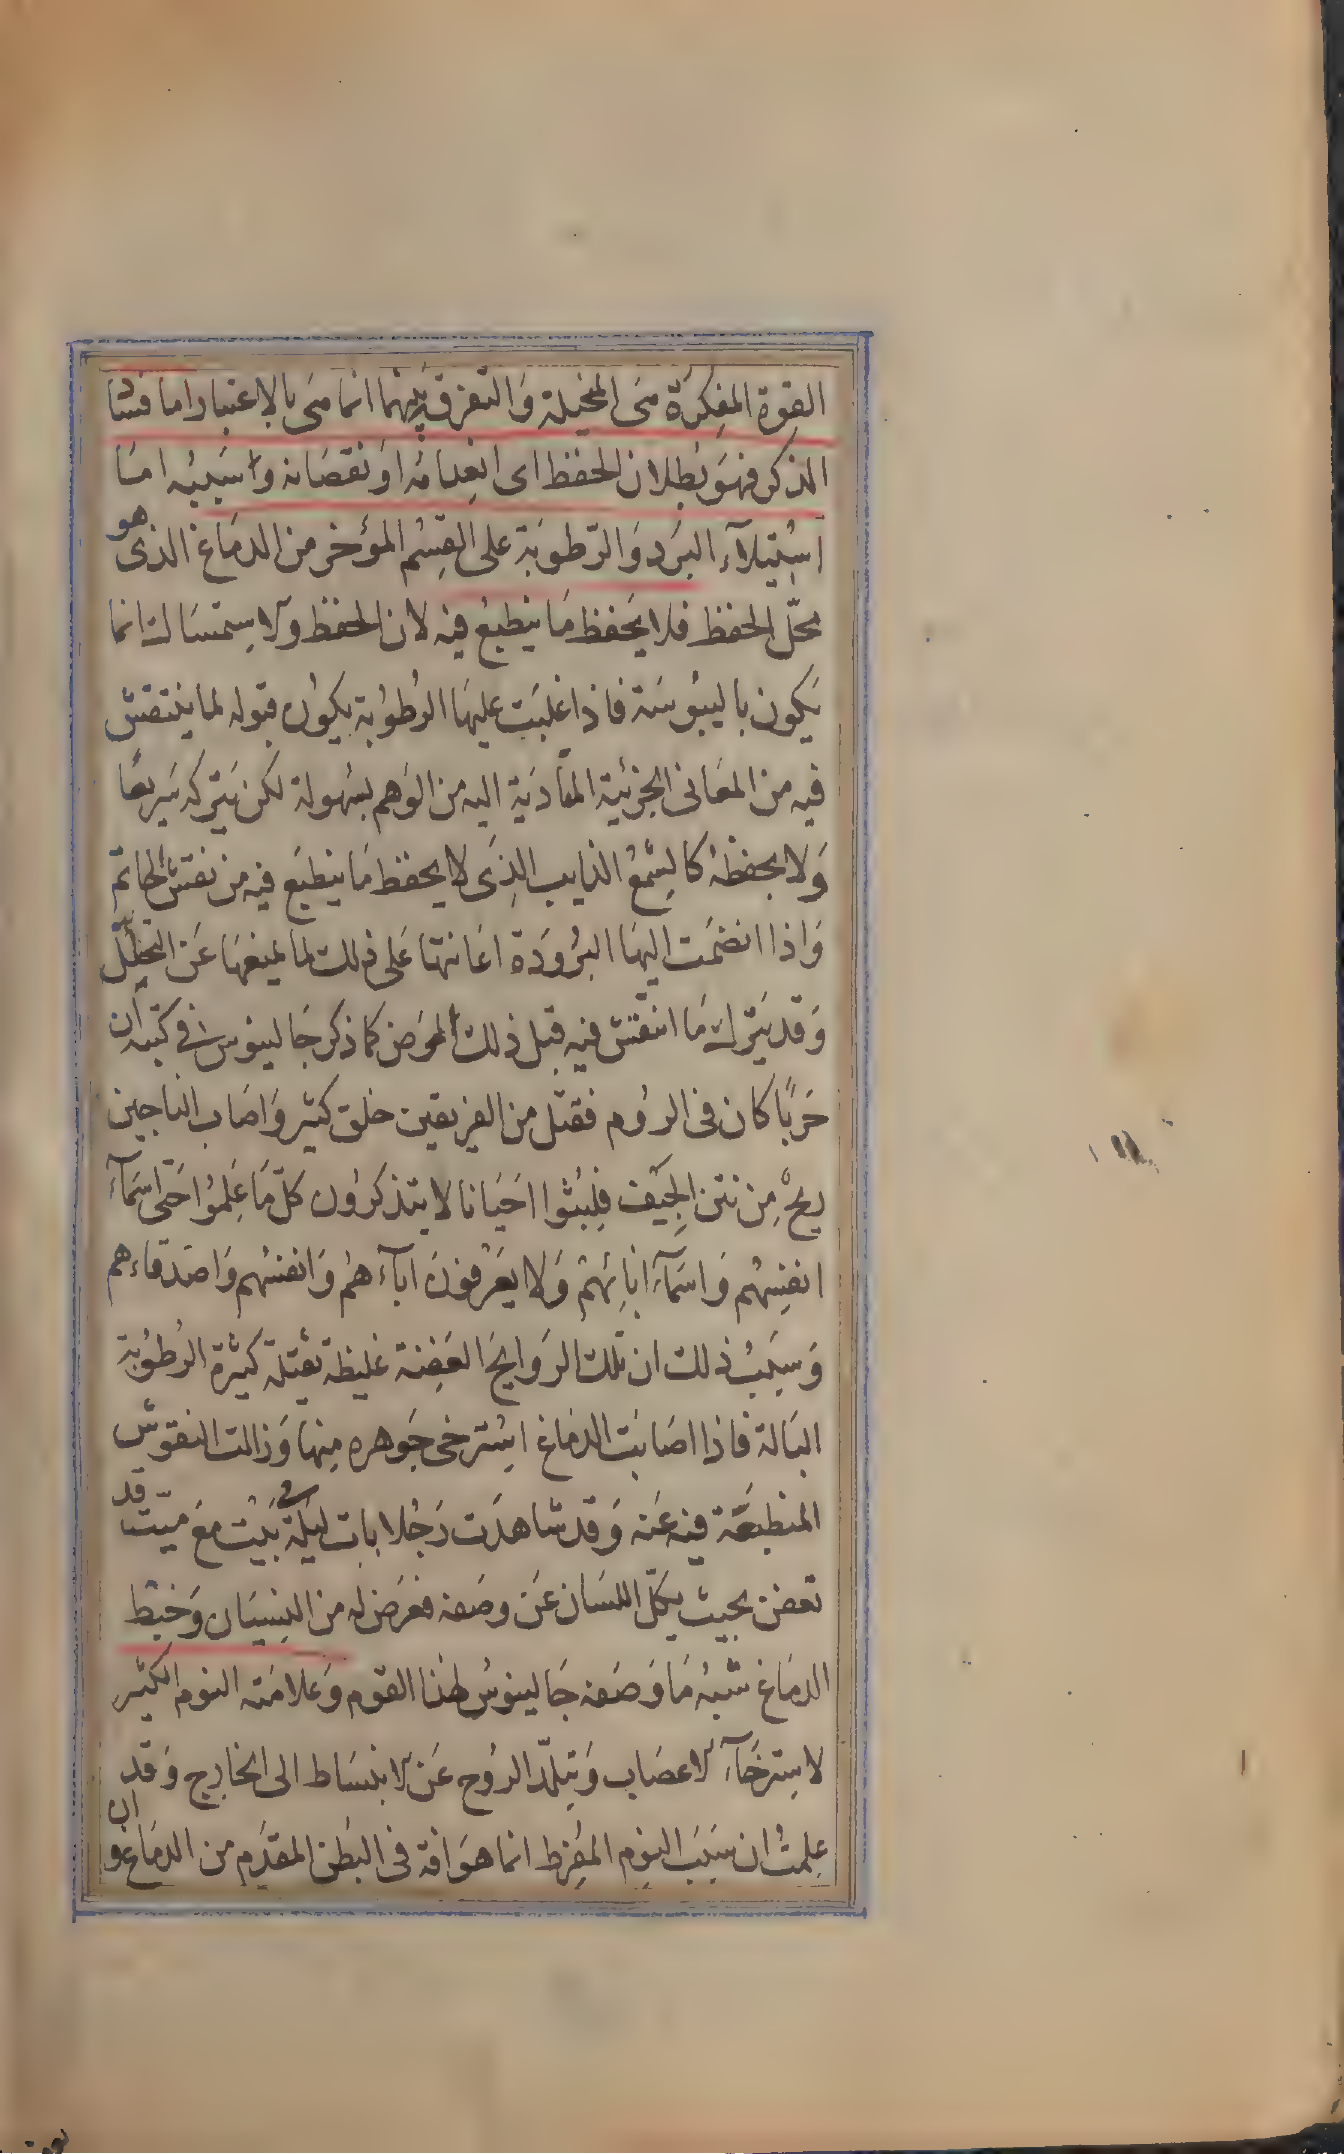 القوة المفكرة هى المخيلة والتفرقة بينهما انما هى بالاعتبار اما فساد
الذكر فهو بطلان الحفظ اى انعدامه او نقصانه واسببه اما
استيلاء البرد والرطوبة على القسم المؤخر من الدماغ الذى هو
محل الحفظ فلا يحفظ ما ينطبع فيه لان الحفظ والاستمساك انما
يكون باليبوسة فاذا غلبت عليها الرطوبة يكون قبوله لما ينتقش
فيه من المعانى الجزئية المتأدية اليه من الوهم بسهولة لكن يتركه سريعا
ولا يحفظه كالشمع الذايب الذى لا يحفظ ما ينطبع فيه من نقش الخاتم
واذا انضمت اليها البرودة اعانتها على ذلك لما يمنعها عن التحلل
وقد يترك ما انتقش فيه قبل ذلك المرض كما ذكر جالينوس فى كتبه ان
حربا كان فى الروم فقتل من الفريقين خلق كثير واصاب الناجين
ريح من نتن الجيف فلبثوا احيانا لا يتذكرون كل ما علموا حتى اسماء
انفسهم واسماء ابائهم ولا يعرفون اباءهم وانفسهم واصدقاءهم
وسبب ذلك ان تلك الروايح العفنة غليظة ثقيلة كثيرة الرطوبة
البالة فاذا اصابت الدماغ استرخى جوهره منها وزالت النقوش
المنطبعة فيه عنه وقد شاهدت رجلا بات ليلة فى بيت مع ميت قد
تعفن بحيث يكل اللسان عن وصفه فعرض له من النسيان وخبط
الدماغ شبه ما وصفه جالينوس لهذا القوم وعلامته النوم الكثير
لاسترخاء الاعصاب وتبلد الروح عن الانبساط الى الخارج وقد
علمت ان سبب النوم المفرط انما هو افة فى البطن المقدم من الدماغ وان